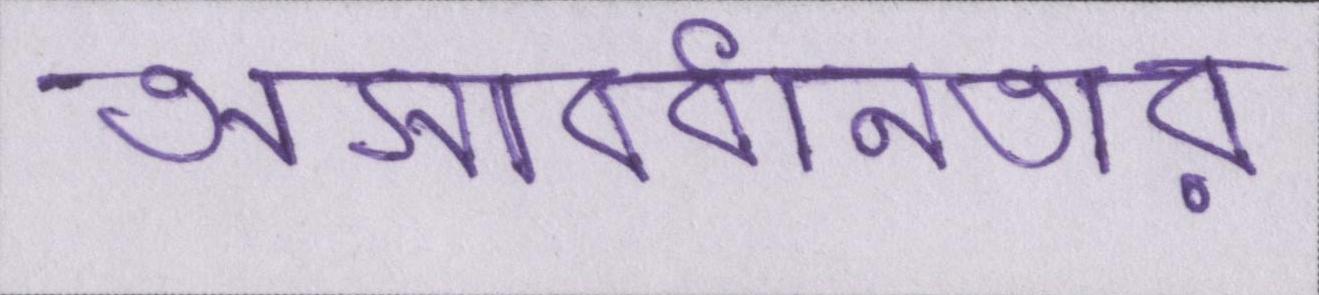 অসাবধানতায়